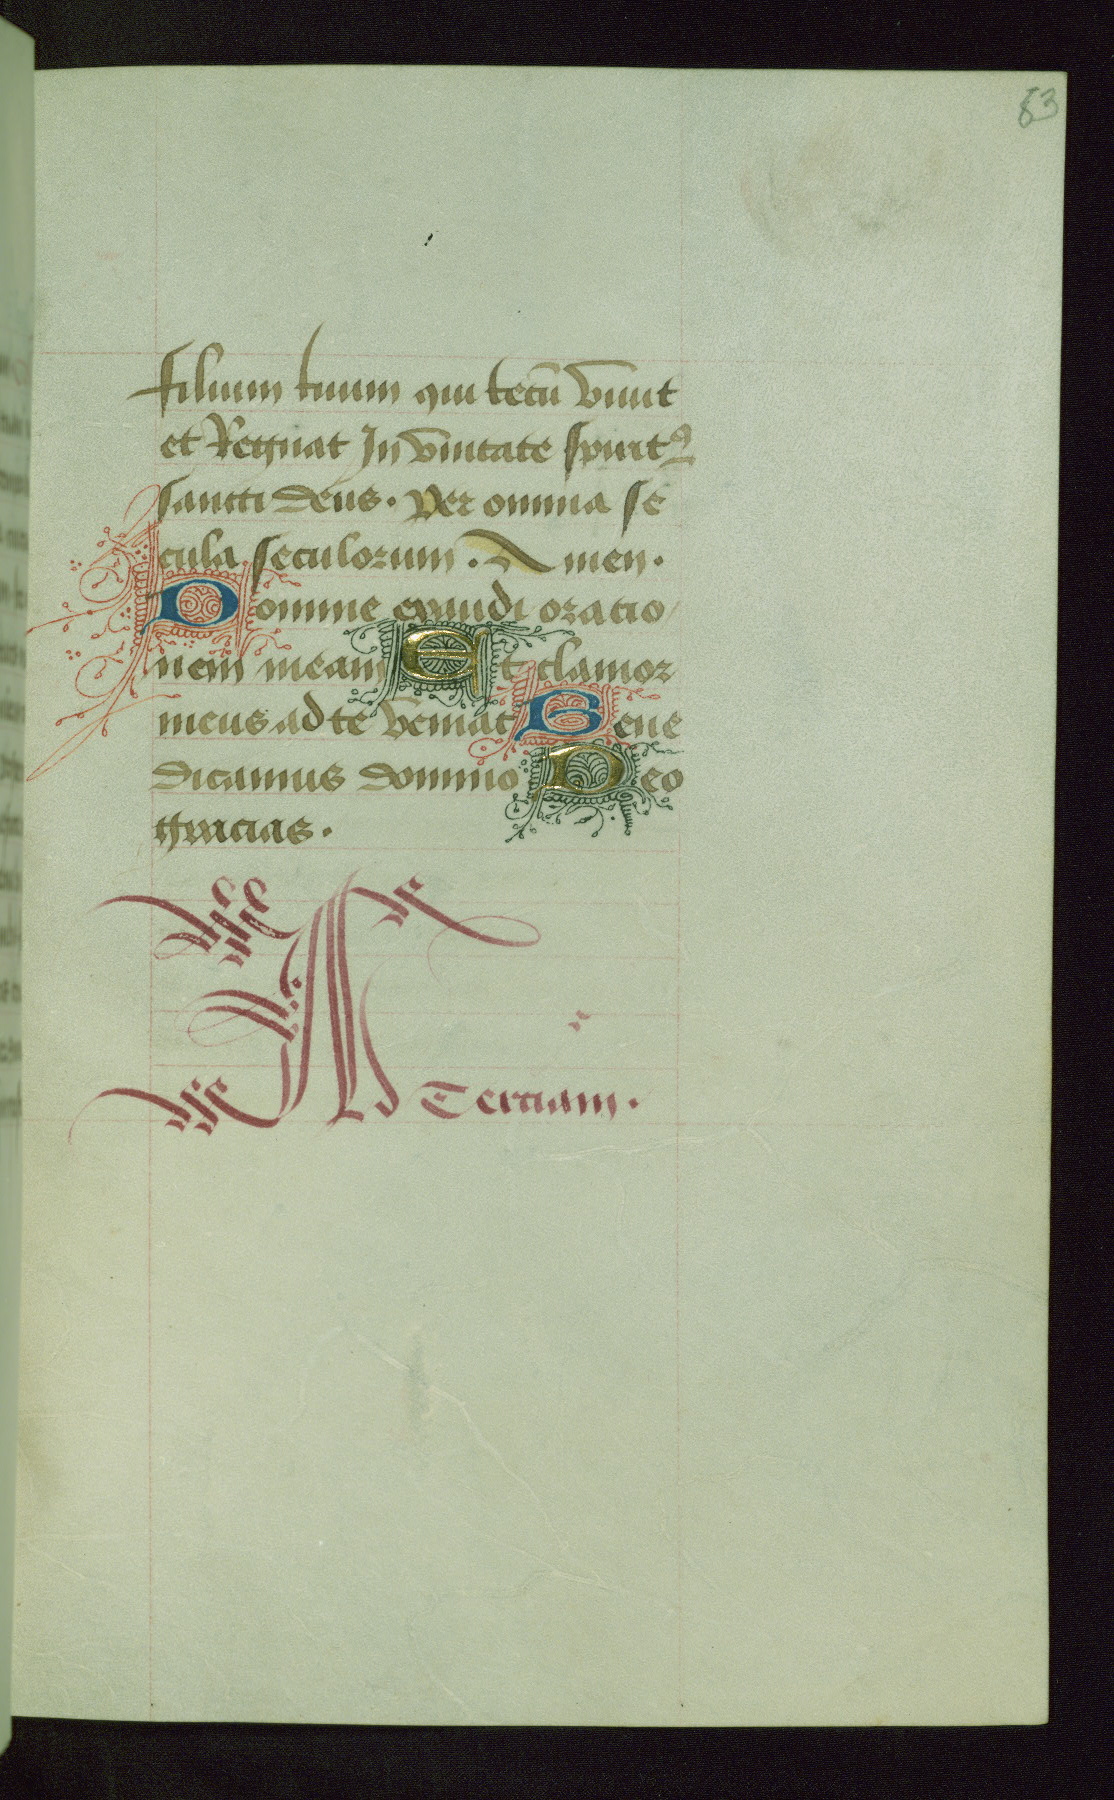 83
filium tuum qui tecū viuit
et Regnat In vnitate spirit9
sancti deus. Per omnia se
cula seculorum. Amen.
Domine exaudi oratio
nem meam Et clamor
meus ad te veniat Bene
dicamus domino Deo
gracias.
Ad Terciam.